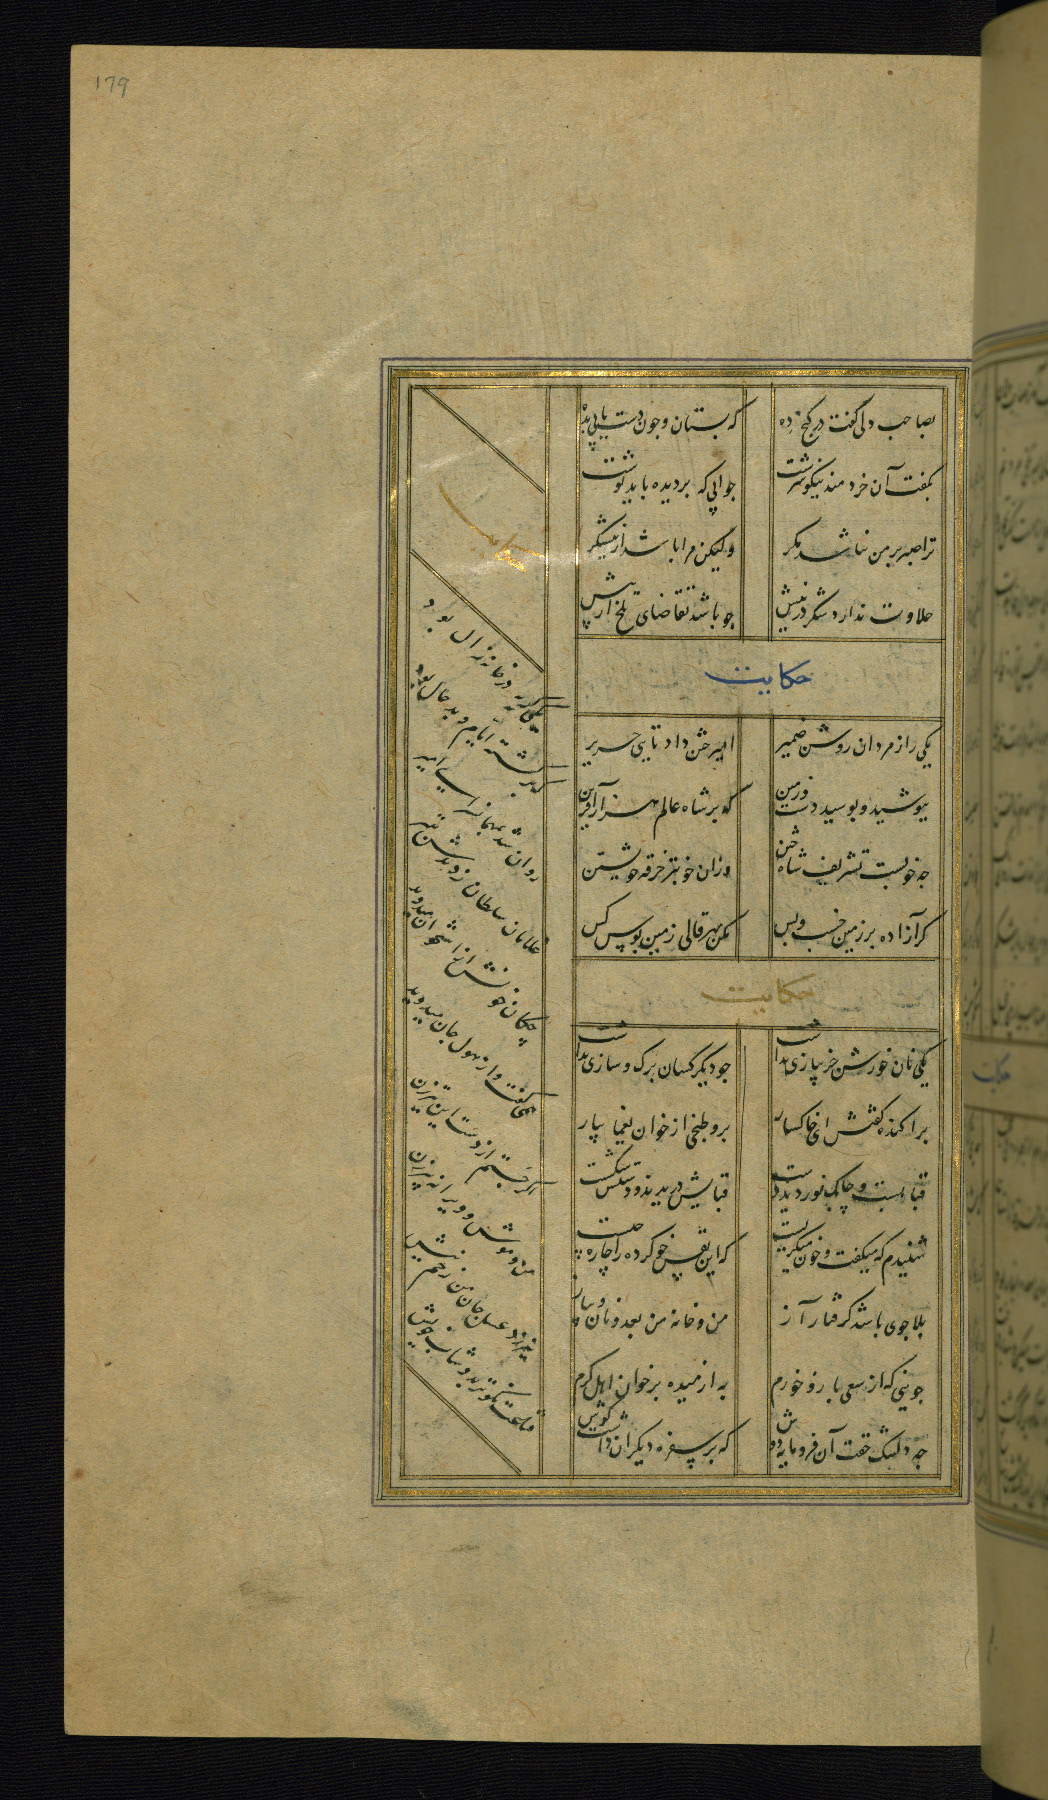 179
بصاحب دلی گفت در کنج ده
که بستان و چون دست یابی بده
بگفت آن خردمند نیکو سرشت
جوابی که بر دیده باید نوشت
ترا صبر بر من نباشد مگر
ولیکن مرا باشد از نیشکر
حلاوت ندارد شکر در نیش
چو باشد تقاضای تلخ از پیش
حکایت
یکی را ز مردان روشن ضمیر
امیر ختن داد تایی حریر
بپوشید و بوسید دست و زمین
که بر شاه عالم هزار آفرین
چه خوبست تشریف شاه ختن
وزان خوبتر خرقه خویشتن
گر آزاده بر زمین خسب و بس
مکن بهر قالی زمین بوس کس
حکایت
یکی نان خورش جز پیازی نداشت
چو دیگر کسان برک و سازی نداشت
پراکنده گفتش ای خاکسار
برو طبخی از خوان یغما بیار
قبا بست و چابک نوردید دست
قبایش دریدند و دستش شکست
شنیدم که میگفت و خون میگریست
که ای نفس خو کرده را چاره چیست
بلا جوی باشد گرفتار آز
من و خانه من بعد و نان و پیاز
جوینی که از سعی بازو خورم
به از میده بر خوان اهل کرم
چه دلتنگ خفت آن فرومایه دوش
که بر سفره دیگران داشت گوش
حکایت
یکی گربه در خانه زال بود
که برگشته ایام و بد حال بود
روان شد بمهمان سرای امیر
غلامان سلطان زدندش بتیر
چکان خونش از استخوان میدوید
همی گفت و از هول جان میدوید
اگر جستم از دست این تیرزن
من و موش و ویرانه پیرزن
نیرزد عسل جان من زخم نیش
قناعت نکوتر بدوشاب خویش